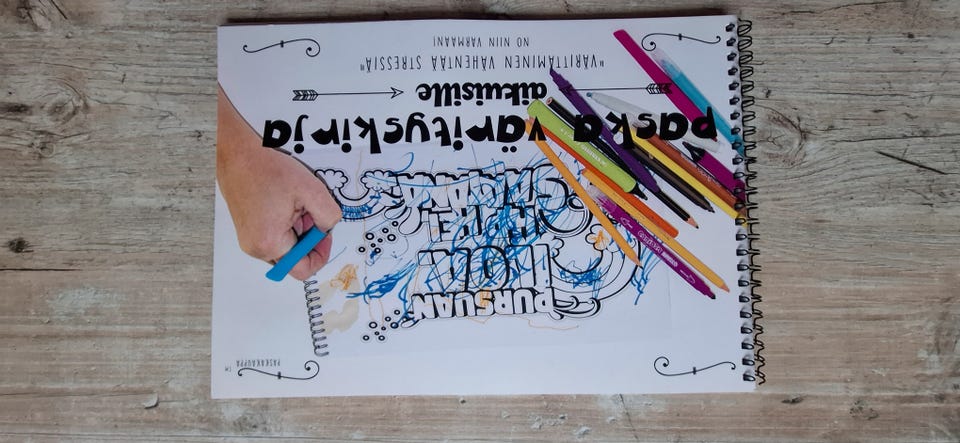 PASKAKAUPPA ™
PURSUAN
ILOA
paska värityskirja
aikuisille
"VÄRITTÄMINEN VÄHENTÄÄ STRESSIÄ"
NO NIIN VARMAAN!